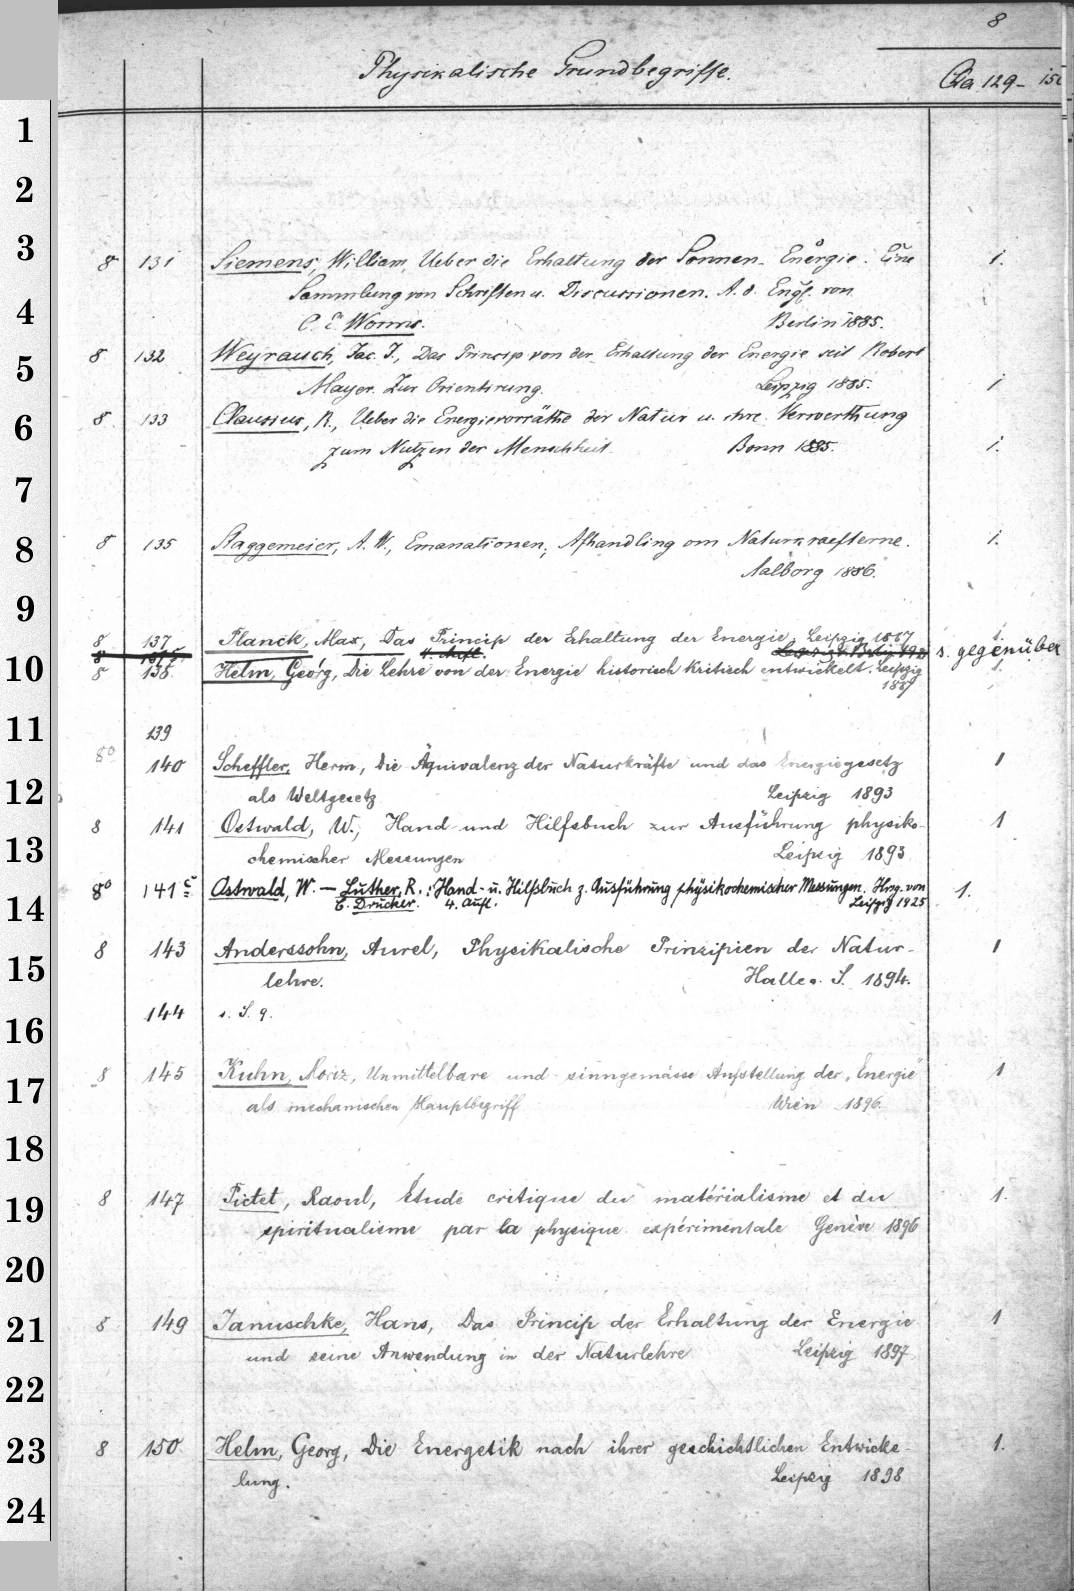 8
Physikalische Grundbegriffe.
Cha 129-
1
2
3
8 131 Siemens, William, Ueber die Erhaltung der Sonnen-Energie. Eine 1.
Sammlung von Schriften u. Discussionen. A. d. Engl. von
4
C. E. Worms. Berlin 1885.
5
8 132 Weyrauch, Jac. J., Das Princip von der Erhaltung der Energie seit Robert
Mayer. Zur Orientirung. Leipzig 1885. 1
6
8 133 Clausius, R., Ueber die Energievorräthe der Natur u. ihre Verwerthung
zum Nutzen der Menschheit. Bonn 1885. 1.
7
8
8 135 Raggemeier, A. W., Emanationen; Afhandling om Naturkraefterne. 1.
Aalborg 1886.
9
8 137 Planck, Max, Das Princip der Erhaltung der Energie, Leipzig 1887 1.
4. Aufl. s. gegenüber
10
8 138 Helm, Georg, Die Lehre von der Energie historisch kritisch entwickelt. Leipzig 1.
1887
11
139
8° 140 Scheffler, Herm, Die Äquivalenz der Naturkräfte und das Energiegesetz 1
12
als Weltgesetz Leipzig 1893
8 141 Ostwald, W., Hand- und Hilfsbuch zur Ausführung physiko- 1
13
chemischer Messungen Leipzig 1893
14
8° 141 c Ostwald, W. — Luther, R.: Hand- u. Hilfsbuch z. Ausführung physikochemischer Messungen. Hrsg. von 1.
C. Drucker. 4. Aufl. Leipzig 1925
8 143 Anderssohn, Aurel, Physikalische Prinzipien der Natur- 1
15
lehre. Halle a. S. 1894.
144 s. S. 9.
16
8 145 Kuhn, Moriz, Unmittelbare und sinngemässe Aufstellung der „Energie“ 1
17
als mechanischen Hauptbegriff Wien 1896.
18
8 147 Pictet, Raoul, Etude critique du matérialisme et du 1.
19
spiritualisme par la physique expérimentale Genève 1896
20
8 149 Januschke, Hans, Das Princip der Erhaltung der Energie 1
21
und seine Anwendung in der Naturlehre Leipzig 1897
22
8 150 Helm, Georg, Die Energetik nach ihrer geschichtlichen Entwicke- 1.
23
lung. Leipzig 1898
24